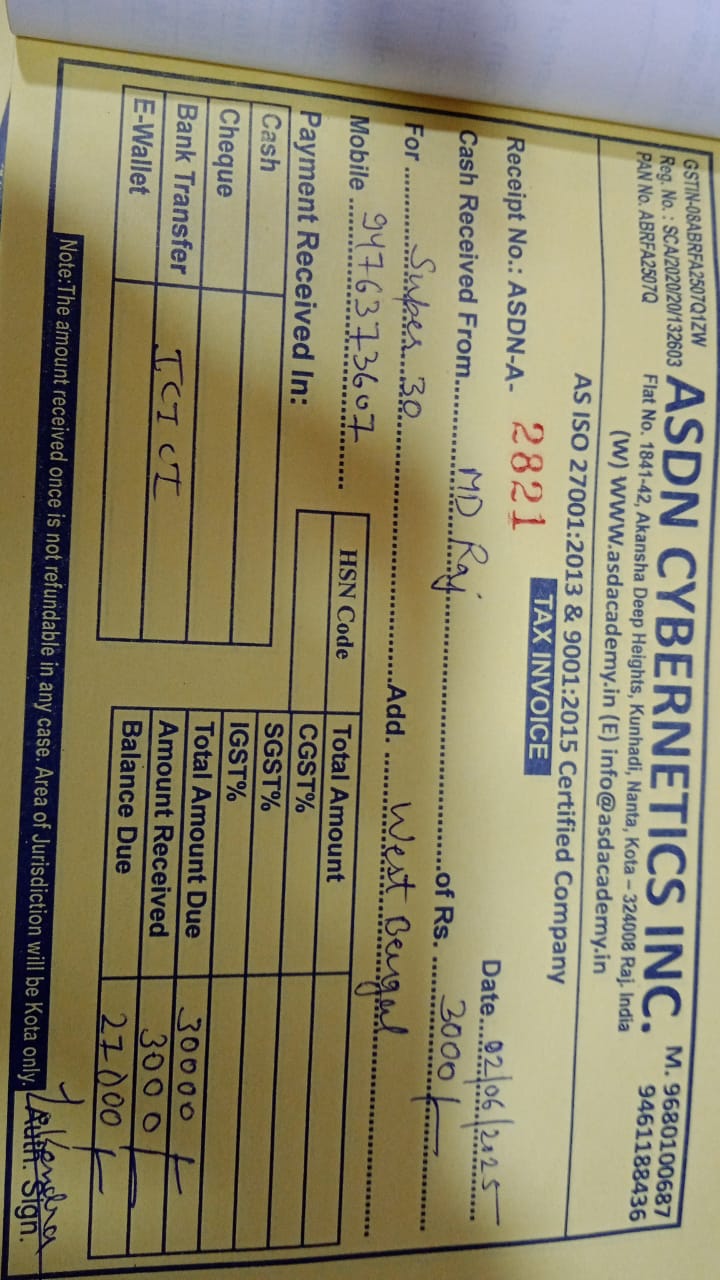 GSTIN-08ABRFA2507Q1ZW
Reg. No. : SCA/2020/20/132603
PAN No. ABRFA2507Q
ASDN CYBERNETICS INC.
M. 9680100687
9461188436
Flat No. 1841-42, Akansha Deep Heights, Kunhadi, Nanta, Kota – 324008 Raj. India
(W) WWW.asdacademy.in (E) info@asdacademy.in
AS ISO 27001:2013 & 9001:2015 Certified Company
TAX INVOICE
Receipt No.: ASDN-A- 2821 Date... 02/06/2025
Cash Received From..... MD Raj .....of Rs. ..... 3000/-
For ..... Super 30 .....Add. ..... West Bengal
Mobile ..... 9476373607
Payment Received In:
Cash
Cheque
Bank Transfer ICICI
E-Wallet
HSN Code Total Amount
CGST%
SGST%
IGST%
Total Amount Due 30000/-
Amount Received 3000/-
Balance Due 27000/-
Note:The amount received once is not refundable in any case. Area of Jurisdiction will be Kota only.
Auth. Sign.